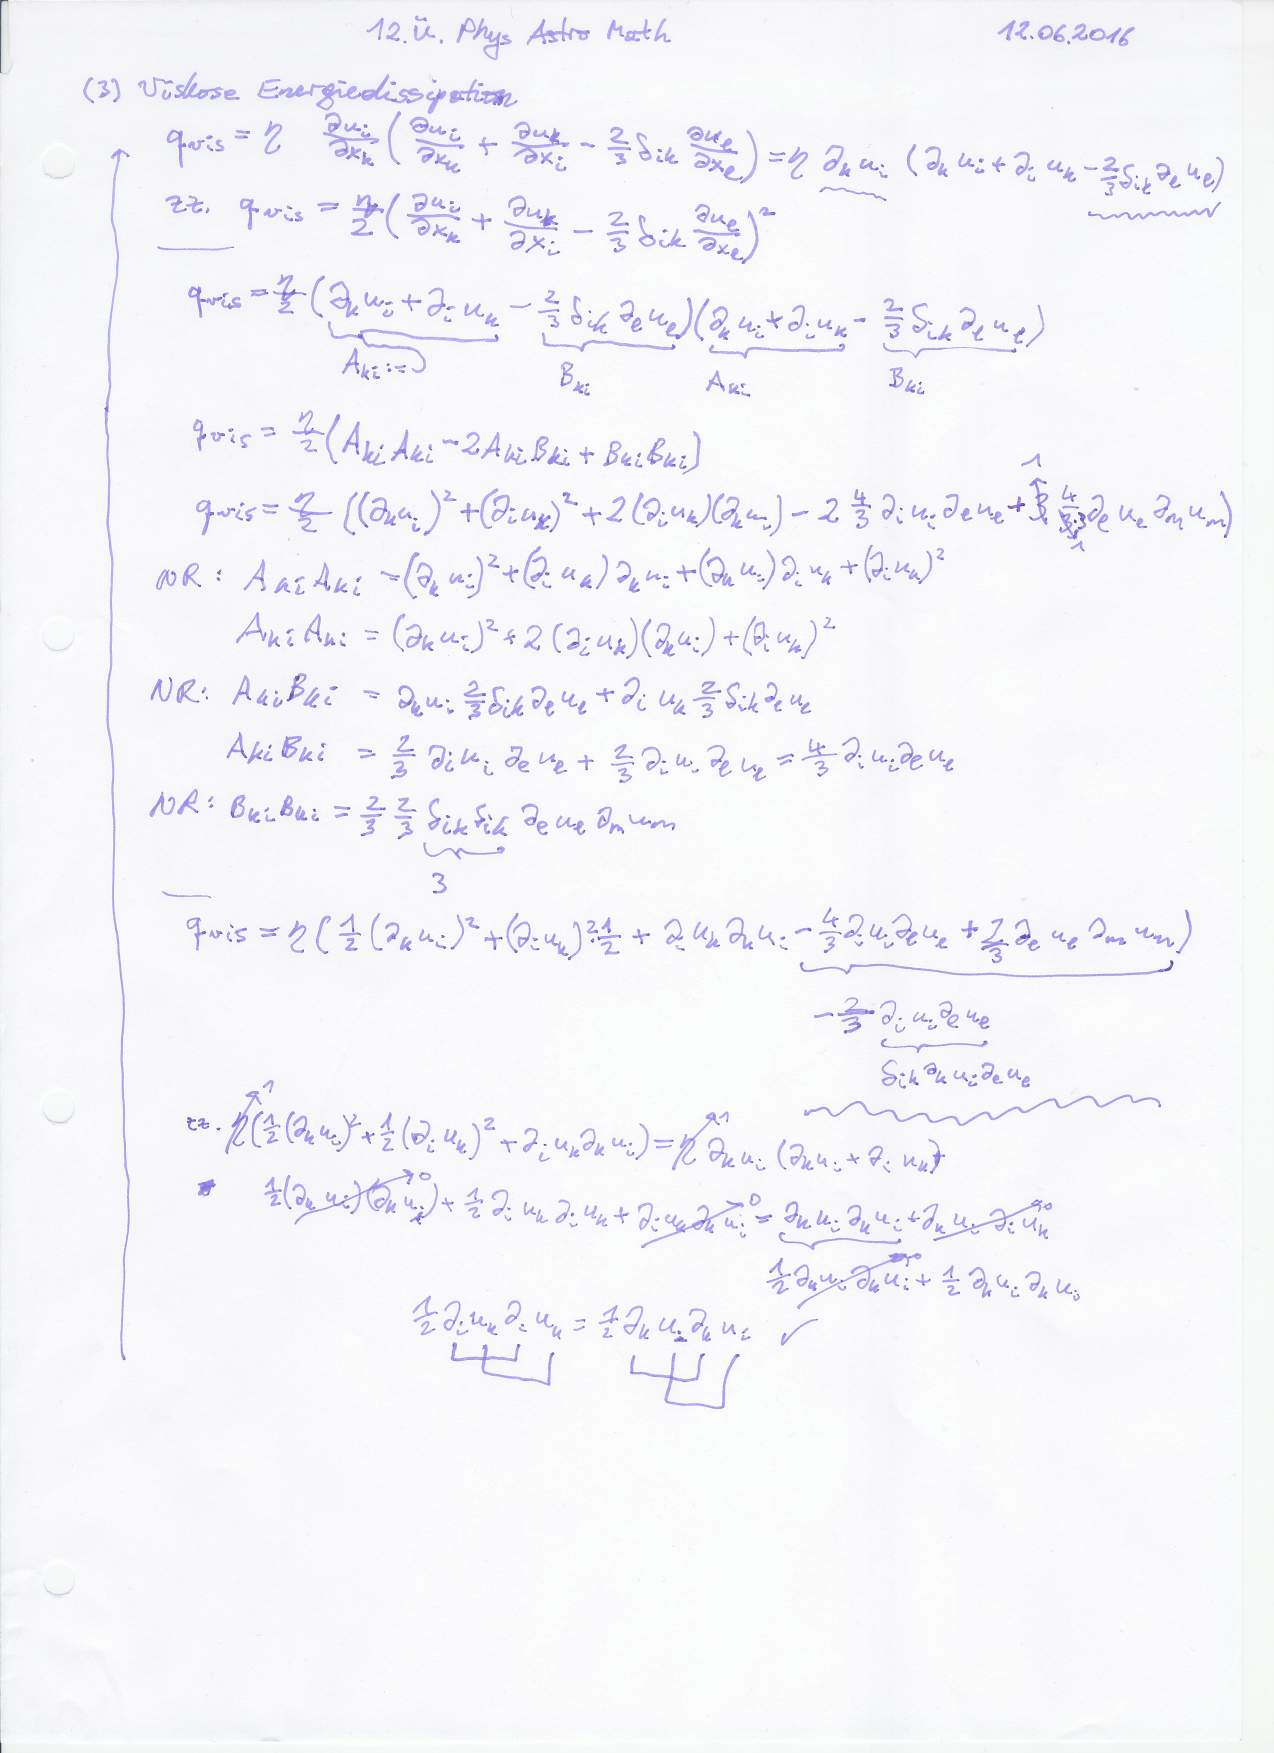 12.Ü. Phys Astro Math 12.06.2016
(3) Viskose Energiedissipation
q_vis = η ∂u_i/∂x_k (∂u_i/∂x_k + ∂u_k/∂x_i - 2/3 δ_ik ∂u_e/∂x_e) = η ∂_k u_i (∂_k u_i + ∂_i u_k - 2/3 δ_ik ∂_e u_e)
zz. q_vis = η/2 (∂u_i/∂x_k + ∂u_k/∂x_i - 2/3 δ_ik ∂u_e/∂x_e)²
q_vis = η/2 (∂_k u_i + ∂_i u_k - 2/3 δ_ik ∂_e u_e)(∂_k u_i + ∂_i u_k - 2/3 δ_ik ∂_e u_e)
A_ki := B_ki A_ki B_ki
q_vis = η/2 (A_ki A_ki - 2A_ki B_ki + B_ki B_ki)
1
q_vis = η/2 ((∂_k u_i)² + (∂_i u_k)² + 2(∂_i u_k)(∂_k u_i) - 2 4/3 ∂_i u_i ∂_e u_e + 3 4/3·3 ∂_e u_e ∂_m u_m)
1
NR: A_ki A_ki = (∂_k u_i)² + (∂_i u_k) ∂_k u_i + (∂_k u_i) ∂_i u_k + (∂_i u_k)²
A_ki A_ki = (∂_k u_i)² + 2 (∂_i u_k)(∂_k u_i) + (∂_i u_k)²
NR: A_ki B_ki = ∂_k u_i 2/3 δ_ik ∂_e u_e + ∂_i u_k 2/3 δ_ik ∂_e u_e
A_ki B_ki = 2/3 ∂_i u_i ∂_e u_e + 2/3 ∂_i u_i ∂_e u_e = 4/3 ∂_i u_i ∂_e u_e
NR: B_ki B_ki = 2/3 2/3 δ_ik δ_ik ∂_e u_e ∂_m u_m
3
q_vis = η (1/2 (∂_k u_i)² + (∂_i u_k)²·1/2 + ∂_i u_k ∂_k u_i - 4/3 ∂_i u_i ∂_e u_e + 2/3 ∂_e u_e ∂_m u_m)
- 2/3 ∂_i u_i ∂_e u_e
δ_ik ∂_k u_i ∂_e u_e
1 1
zz. η (1/2 (∂_k u_i)² + 1/2 (∂_i u_k)² + ∂_i u_k ∂_k u_i) = η ∂_k u_i (∂_k u_i + ∂_i u_k)
1/2 (∂_k u_i)(∂_k u_i) 0 + 1/2 ∂_i u_k ∂_i u_k + ∂_i u_k ∂_k u_i 0 = ∂_k u_i ∂_k u_i + ∂_k u_i ∂_i u_k 0
1/2 ∂_k u_i ∂_k u_i 0 + 1/2 ∂_k u_i ∂_k u_i
1/2 ∂_i u_k ∂_i u_k = 1/2 ∂_k u_i ∂_k u_i ✓